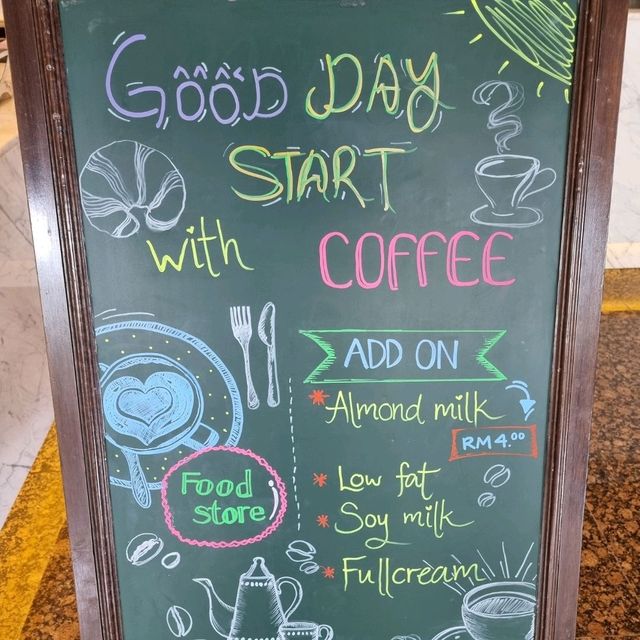 GOOD DAY
START
with COFFEE
ADD ON
* Almond milk
RM 4.00
Food
store
* Low fat
* Soy milk
* Fullcream